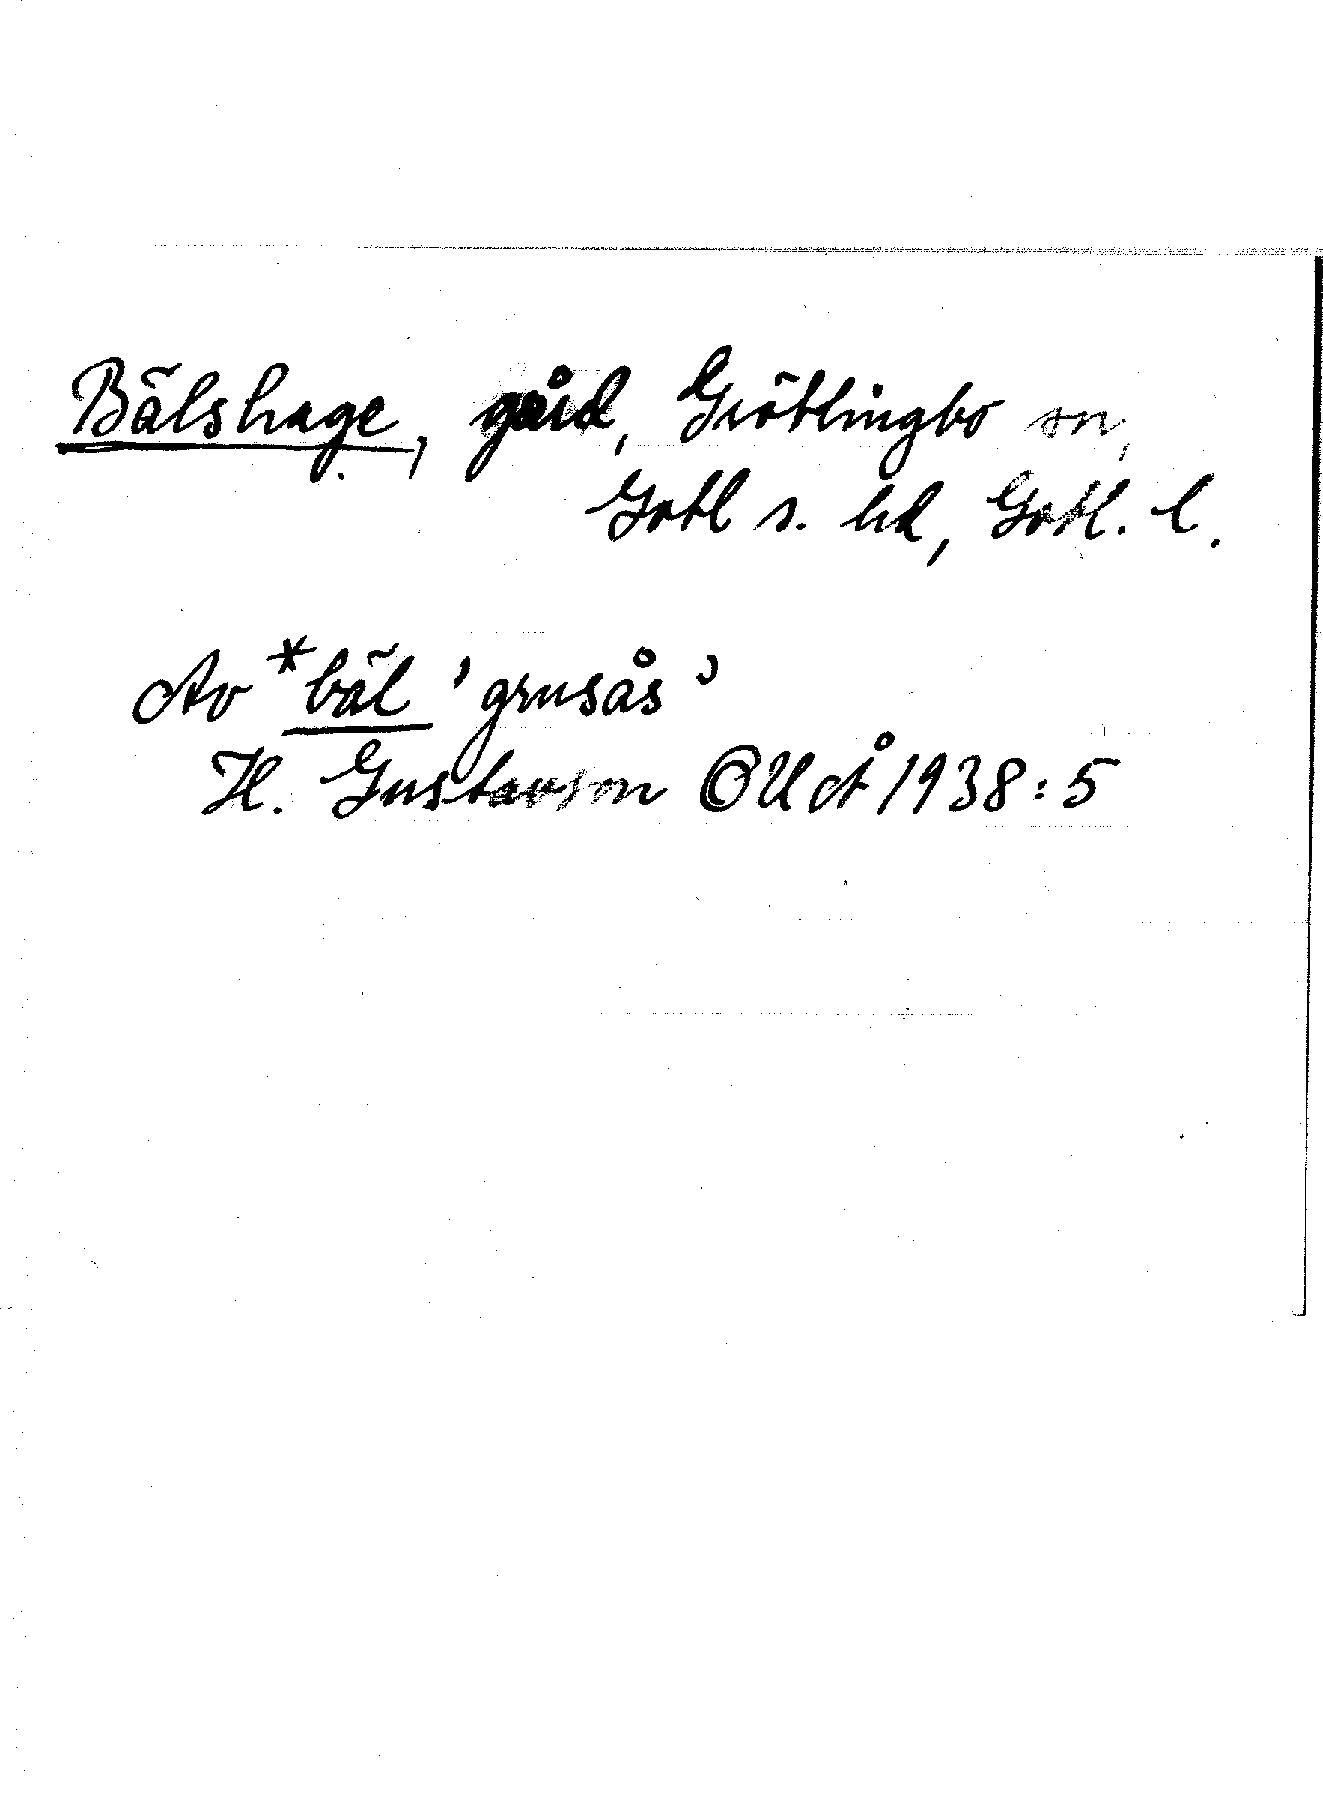 Bälshage, gård, Grötlingbo sn,
Gotl s. hd, Gotl. l.
Av *bäl 'grusås'
H. Gustavson OUÅ 1938:5